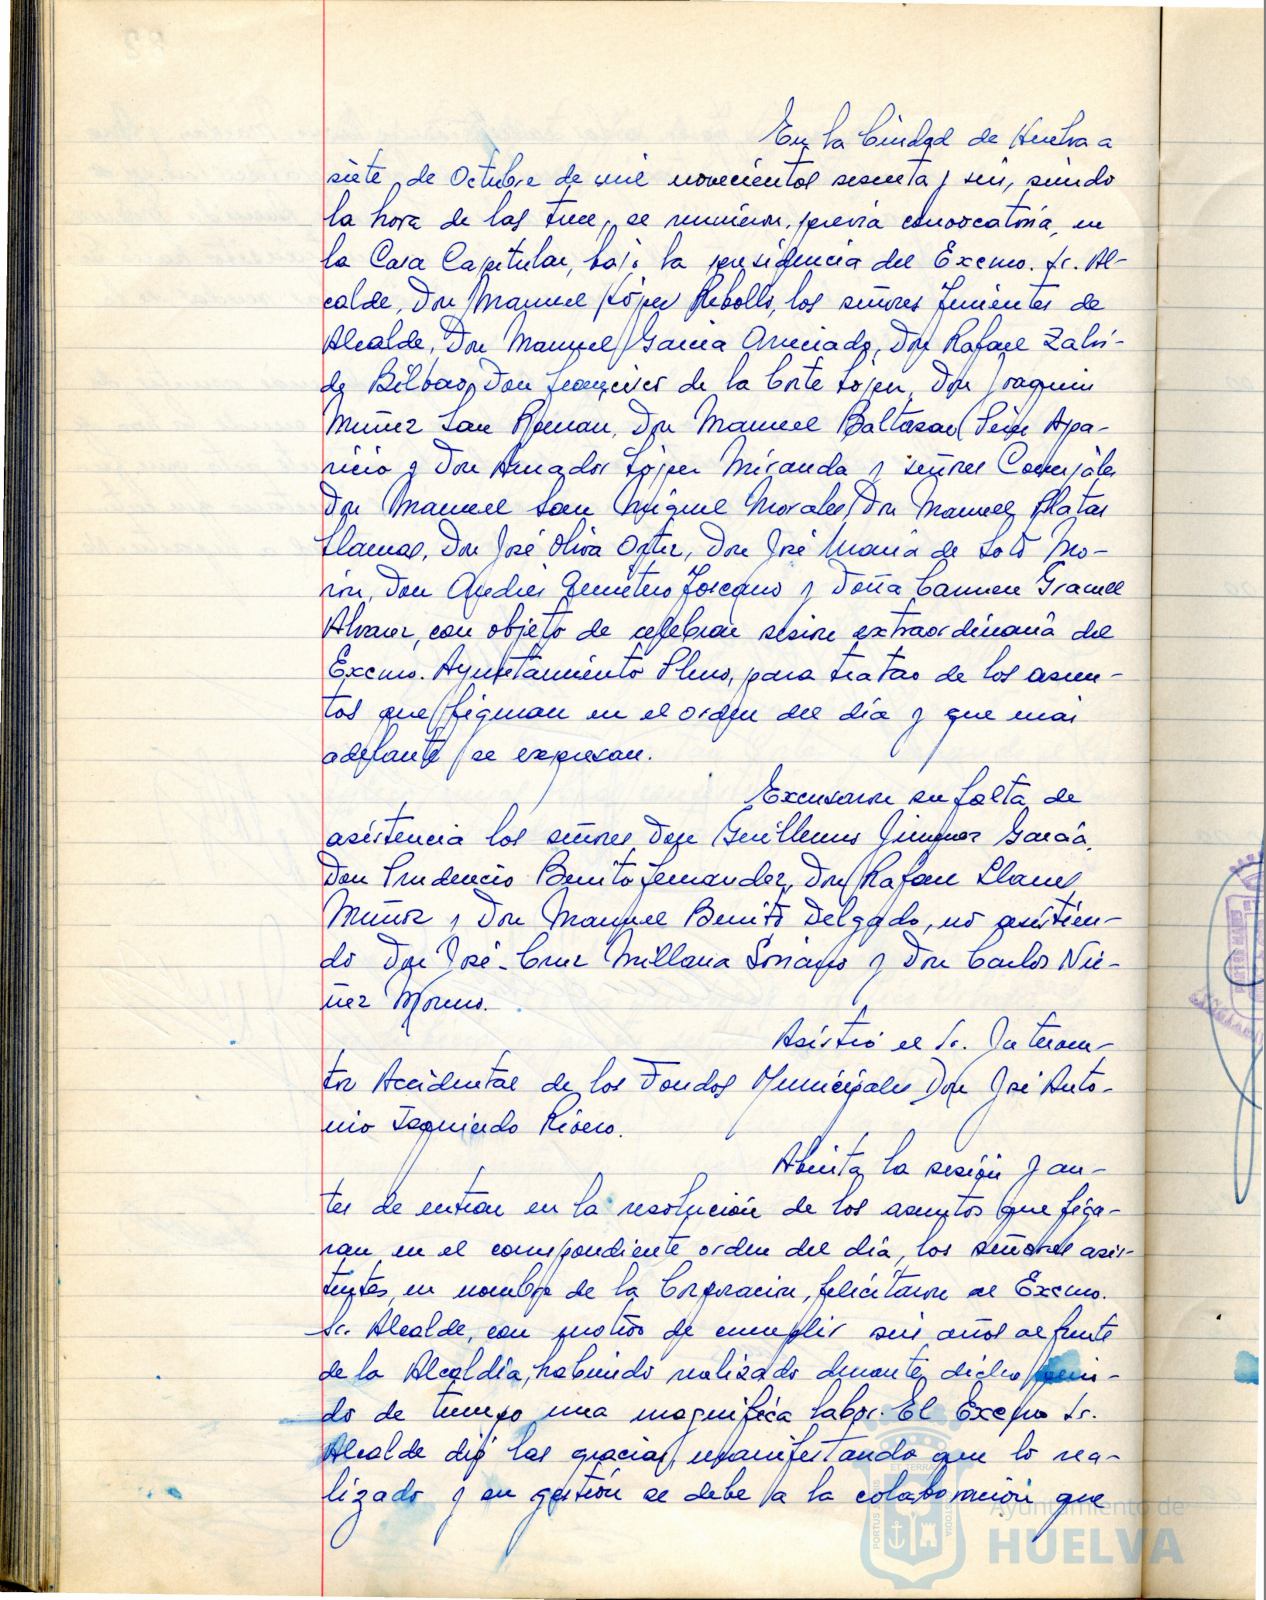 En la Ciudad de Huelva a
siete de Octubre de mil novecientos sesenta y seis, siendo
la hora de las trece, se reunieron, previa convocatoria, en
la Casa Capitular, bajo la presidencia del Excmo. Sr. Al-
calde, Don Manuel López Rebollo, los señores Tenientes de
Alcalde, Don Manuel García Ameciado, Don Rafael Zalví-
de Bilbao, Don Francisco de la Corte López, Don Joaquin
Muñiz San Roman, Don Manuel Baltasar León Apa-
ricio y Don Amador López Miranda y señores Concejales
Don Manuel San Miguel Morales, Don Manuel Platas
Llamas, Don José Oliva Ortiz, Don José María de Soto Mo-
rón, Don Andrés Demetrio Toscano y Doña Carmen Granell
Alvarez, con objeto de celebrar sesión extraordinaria del
Excmo. Ayuntamiento Pleno, para tratar de los asun-
tos que figuran en el orden del día y que más
adelante se expresan.
Excusaron su falta de
asistencia los señores Don Guillermo Jimenez García,
Don Prudencio Benito Fernandez, Don Rafael Llanes
Muñoz y Don Manuel Benito Delgado, no asistien-
do Don José-Cruz Millana Soriano y Don Carlos Nú-
ñez Moreno.
Asistió el Sr. Interven-
tor Accidental de los Fondos Municipales Don José Anto-
nio Izquierdo Rivero.
Abierta la sesión y an-
tes de entrar en la resolución de los asuntos que figu-
ran en el correspondiente orden del día, los señores asis-
tentes, en nombre de la Corporacion, felicitaron al Excmo.
Sr. Alcalde, con motivo de cumplir seis años al frente
de la Alcaldía, habiendo realizado durante dicho perio-
do de tiempo una magnifica labor. El Excmo Sr.
Alcalde dió las gracias, manifestando que lo rea-
lizado y su gestión se debe a la colaboración que
Ayuntamiento de
HUELVA